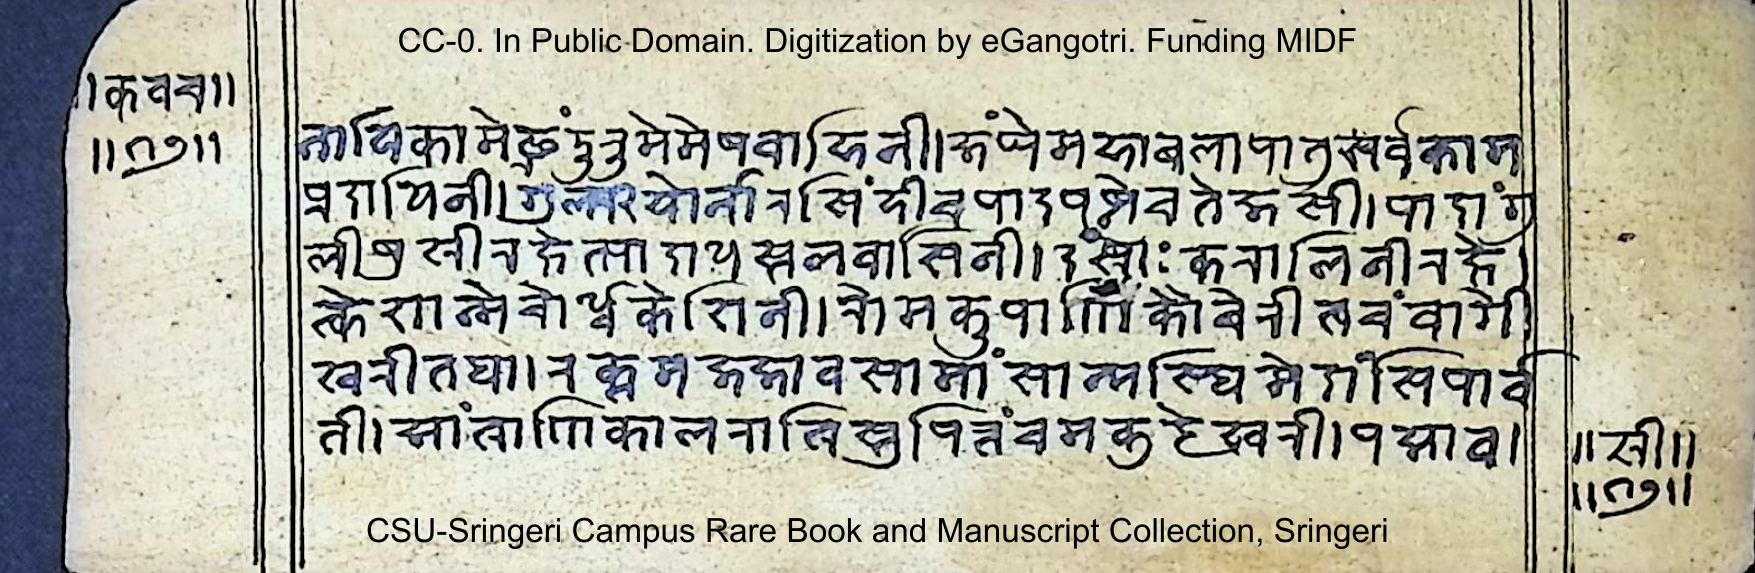 CC-0. In Public Domain. Digitization by eGangotri. Funding MIDF
॥कवच॥
॥७॥
नाविकामेढ्रंगुदुमेमेषवाहिनी।जंघेमहाबलापातुसर्वकाम
प्रदायिनी।गुल्फयोर्नारसिंहीचपादपृष्ठेचतेजसी।पादांगु
लीश्रीनखेत्पादाधस्थलवासिनी।दंष्ट्राःकरालिनीरक्षे
त्केशान्मेचोर्ध्वकेशिनी।रोमकुपाणिकौबेरीत्वचंवागी
श्वरीतथा।रक्तमज्जावसामांसान्मस्थिमेदांसिपार्व
ती।आंत्राणिकालरात्रिस्तुपित्तंचमकुटेश्वरी।पद्माव।
॥सी॥
॥७॥
CSU-Sringeri Campus Rare Book and Manuscript Collection, Sringeri